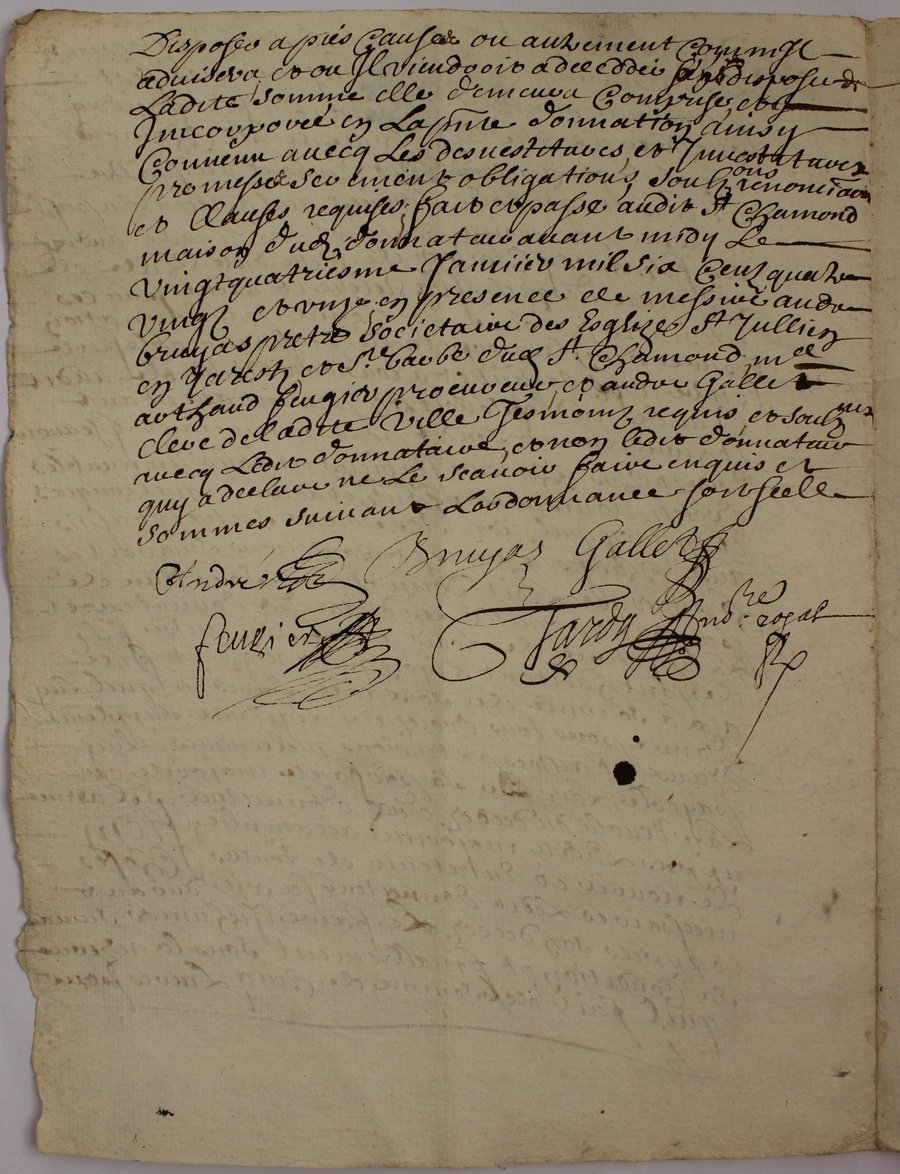 Disposer apres Cause ou autrement Comm Il
advisera et ou Il viendroit a deceddé sans disposer de
Ladite somme elle demeura Comprise et
Incorporeé en La pnte donnation ainsy
Convenu avecq Les desvestitures et Investitures
promesses serement obligations soubz ons renonciaons
et Clauses requises fait et passé audit St Chamond
maison dud donnateur avant midy Le
vingtquatriesme Janvier mil six Centz quatre
vingtz et unze en presence de messire andre
bruyas pretre societaire des Esglizes St Jullien
en Jarestz et Ste barbe dud St Chamond me
arthaud feugier procureur et andre Gallet
clerc de ladite Ville Tesmoins requis et soubznez
avecq Ledit donnataire et non ledit donnateur
quy a declare ne Le scavoir faire enquis et
sommes suivant Lordonnance soit scelle
André Bruyas Gallet
feugier Tardy nore royal